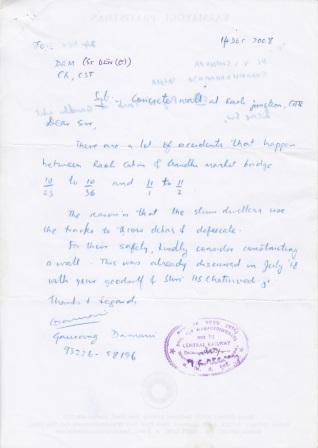 14 Dec 2008
To,
DRM (Sr DEN (C))
CR, CST
Sub - Concrete wall at Raoli junction,
Dear Sir,
There are a lot of accidents that happen
between Raoli Cabin & Gandhi market bridge
10/23 to 10/36 and 11/1 to 11/2.
The reason is that the slum dwellers use
the tracks to throw debris & defecate.
For their safety, kindly consider constructing
a wall. This was already discussed in July
with your goodself & Shri HS Chaturvedi ji.
Thanks & regards
Gaurang Damani
93226-58196
CENTRAL RAILWAY